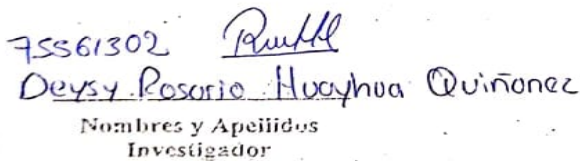 75561302
Deysy Rosario Huayhua Quiñonez
Nombres y Apellidos
Investigador